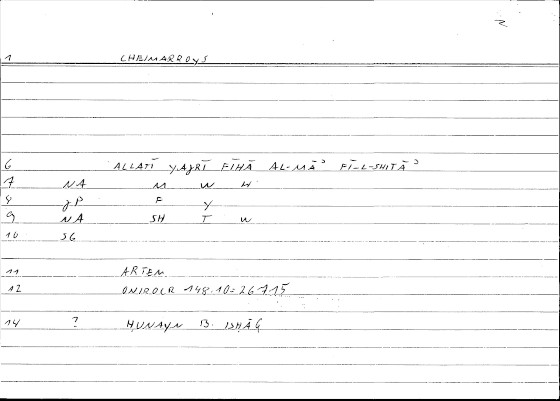 2
1 CHEIMARROYS
6 ALLATĪ YAǦRĪ FĪHĀ AL-MĀʾ FĪ-L-SHITĀʾ
7 NA M W H
8 gP F Y
9 NA SH T W
10 SG
11 ARTEM.
12 ONIROCR 148.10 = 267.15
14 ? ḤUNAYN B. ISḤĀQ